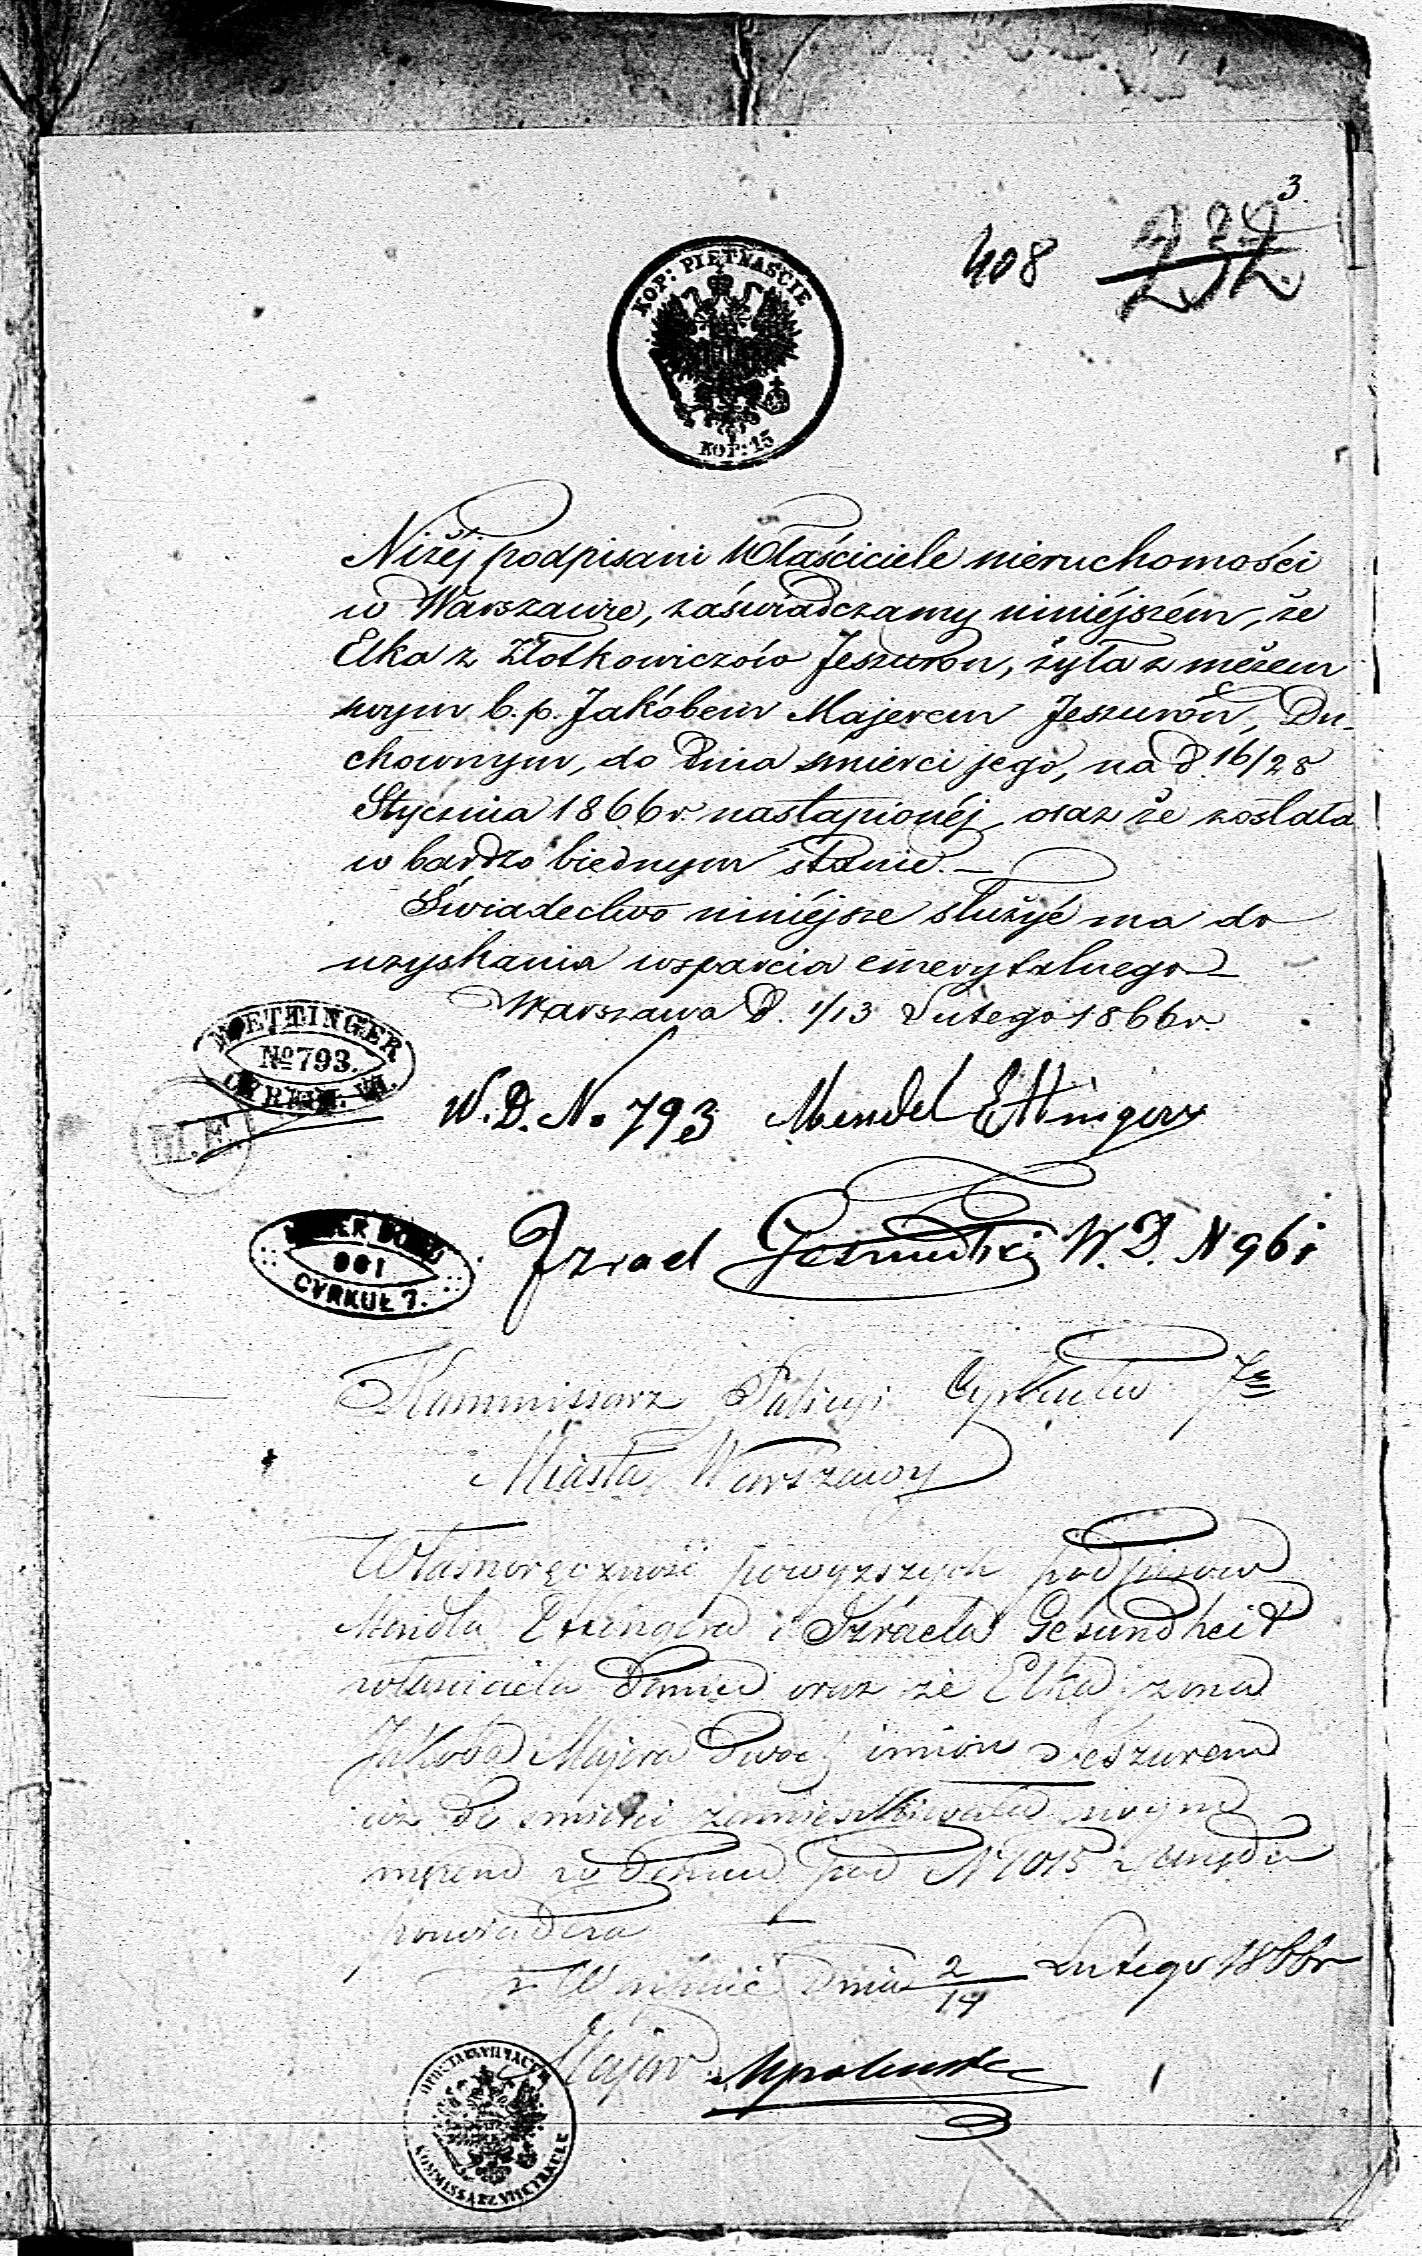 3
408 232
KOP: PIĘTNAŚCIE
KOP: 15
Niżéj podpisani Właściciele nieruchomości
w Warszawie, zaświadczamy niniéjszém, że
Elka z Złotkowiczów Jeszuron, żyła z mężem
swym b. p. Jakóbem Majerem Jeszuron, Du-
chownym, do dnia śmierci jego, na d. 16/28
Stycznia 1866 r. nastąpionéj, oraz że została
w bardzo biednym stanie. —
Świadectwo niniéjsze służyć ma do
uzyskania wsparcia emerytalnego —
Warszawa d. 1/13 Lutego 1866 r.
M. ETTINGER
No 793.
CYRKUŁ VII.
M.E.
W. D. No 793 Mendel Ettinger
CYRKUŁ 7.
Izrael W. D. N 961
Kommissarz Policyi Cyrkułu 7go
Miasta Warszawy
Własnoręczność powyższych podpisów
Mendla Ettingera i Izraela Gesundheit
właściciela domu oraz że Elka żona
Jakóba Majera dwoch imion Jeszurem
do śmierci zamieszkiwała swym
mężem w domu pod N 1015 z urzędu
poświadcza
w Warszawie dnia 2/14 Lutego 1866 r
Major